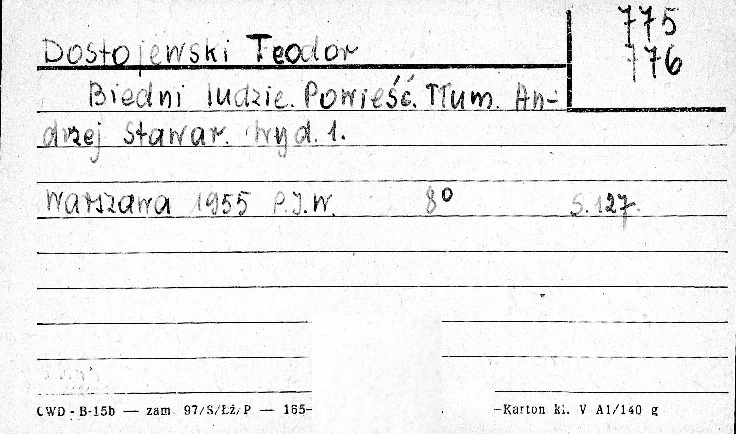 775
776
Dostojewski Teodor
Biedni ludzie. Powieść. Tłum. An-
drzej Stawar. Wyd. 1.
Warszawa 1955 P.I.W. 8° S. 127.
CWD - B-15b — zam 97/S/Łź/P — 165- -Karton kl. V A1/140 g